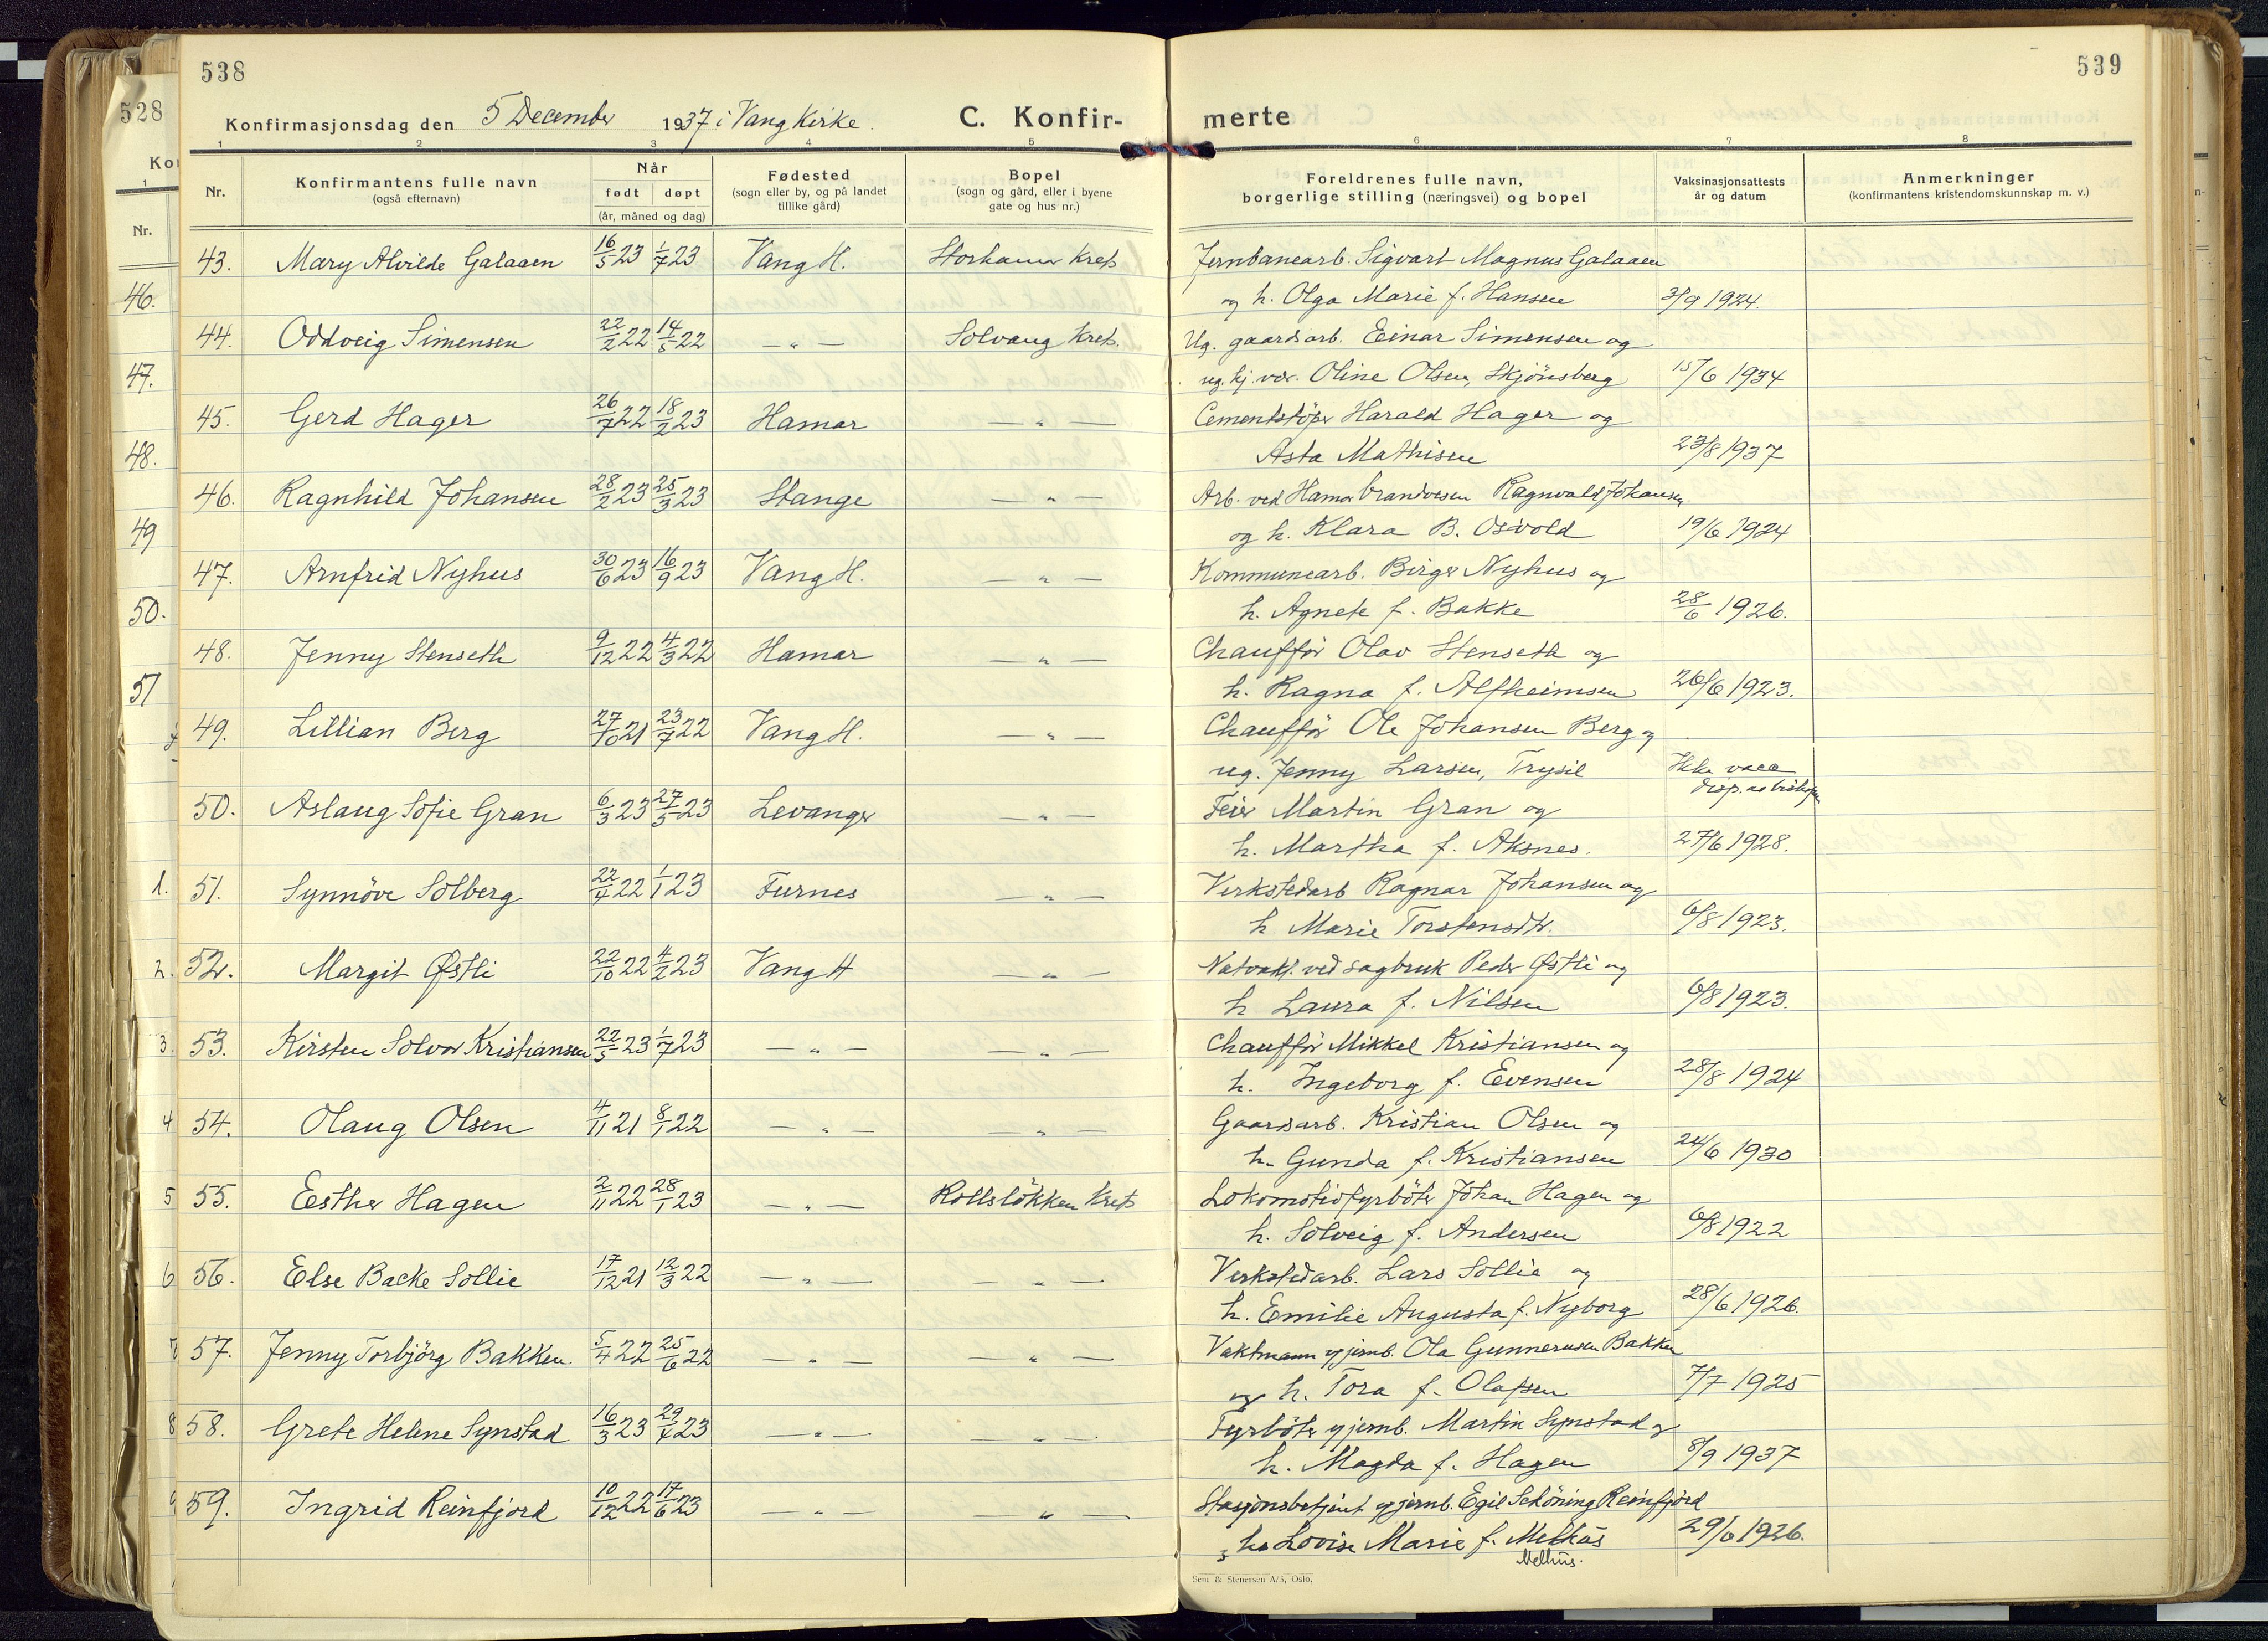 538
539
528
Konfirmasjonsdag den 5 December 1937 i Vang Kirke.
C. Konfir-
merte
1 2 3 4 5 6 7 8
Nr.
Konfirmantens fulle navn
(også efternavn)
Når
født døpt
(år, måned og dag)
Fødested
(sogn eller by, og på landet
tillike gård)
Bopel
(sogn og gård, eller i byene
gate og hus nr.)
Foreldrenes fulle navn,
borgerlige stilling (næringsvei) og bopel
Vaksinasjonsattests
år og datum
Anmerkninger
(konfirmantens kristendomskunnskap m. v.)
43. Mary Alvilde Galaaen 16/5 23 1/7 23 Vang H. Storhamar Krets Jernbanearb. Sigvart Magnus Galaaen
og h. Olga Marie f. Hansen 3/9 1924.
44. Oddveig Simensen 22/2 22 14/5 22 — " — Solvang Krets. Ug. gaardsarb. Einar Simensen og
ug. hj.vær. Oline Olsen, Skjönsberg 15/6 1934
45. Gerd Hager 26/7 22 18/2 23 Hamar — " — Cementstöper Harald Hager og
Asta Mathisen 23/8 1937
46. Ragnhild Johansen 28/2 23 25/3 23 Stange — " — Arb. ved Hamar brandvesen Ragnvald Johansen
og h. Klara B. Osvold 19/6 1924
47. Arnfrid Nyhus 30/6 23 16/9 23 Vang H. — " — Kommunearb. Birger Nyhus og
h. Agnete f. Bakke 28/6 1926.
48. Jenny Stenseth 9/12 22 4/3 22 Hamar — " — Chaufför Olav Stenseth og
h. Ragna f. Alfheimsen 26/6 1923.
49. Lillian Berg 27/10 21 23/7 22 Vang H. — " — Chaufför Ole Johansen Berg og
ug. Jenny Larsen, Trysil Ikke vacc
disp. av bishopen
50. Aslaug Sofie Gran 6/3 23 27/5 23 Levanger — " — Feier Martin Gran og
h. Martha f. Aksnes. 27/6 1928.
51. Synnöve Solberg 22/4 22 1/1 23 Furnes — " — Verkstedarb Ragnar Johansen og
h Marie Torstensdtr. 6/8 1923.
52. Margit Østli 22/10 22 4/2 23 Vang H — " — Natvakt. ved sagbruk Peder Østli og
h Laura f. Nilsen 6/8 1923.
53. Kirsten Solvor Kristiansen 22/5 23 1/7 23 — " — — " — Chaufför Mikkel Kristiansen og
h. Ingeborg f. Evensen 28/8 1924
54. Olaug Olsen 4/11 21 8/1 22 — " — — " — Gaardsarb. Kristian Olsen og
h. Gunda f. Kristiansen 24/6 1930
55. Esther Hagen 2/11 22 28/1 23 — " — Rollslökken Krets Lokomotivfyrböter Johan Hagen og
h. Solveig f. Andersen 6/8 1922
56. Else Backe Sollie 17/12 21 12/3 22 — " — — " — Verkstedarb. Lars Sollie og
h. Emilie Augusta f. Nyborg 28/6 1926.
57. Jenny Torbjörg Bakken. 5/4 22 25/6 22 — " — — " — Vaktmann v jernb. Ola Gunnerusen Bakken
og h. Tora f. Olafsen 7/7 1925
58. Grete Helene Synstad 16/3 23 29/4 23 — " — — " — Fyrböter v jernb. Martin Synstad og
h. Magda f. Hagen 8/9 1937
59. Ingrid Reinfjord 10/12 22 17/6 23 — " — — " — Stasjonsbetjent v jernb. Egil Schöning Reinfjord
h. Lovise Marie f. Melhüs 29/6 1926.
Melhüs.
Sem & Stenersen A/S, Oslo.
Ko
1
Nr.
46.
47.
48.
49
50.
51
1.
2.
3.
4
5
6
8